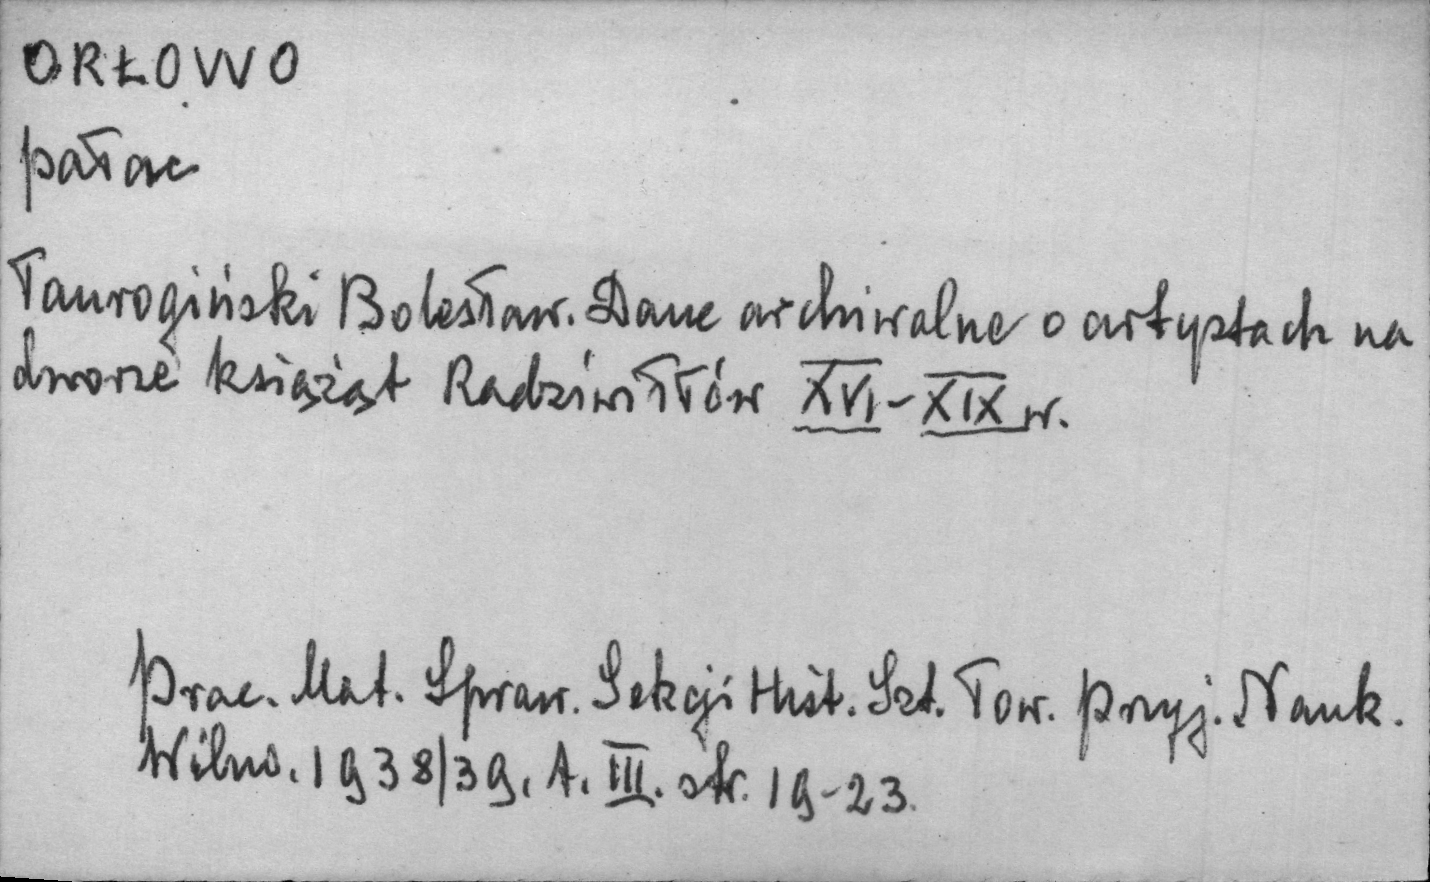 ORŁOWO
pałac
Taurogiński Bolesław. Dane archiwalne o artystach na
dworze książąt Radziwiłłów XVI-XIX w.
Prac. Mat. Spraw. Sekcji Hist. Szt. Tow. Przyj. Nauk.
Wilno. 1938/39, t. III. str. 19-23.